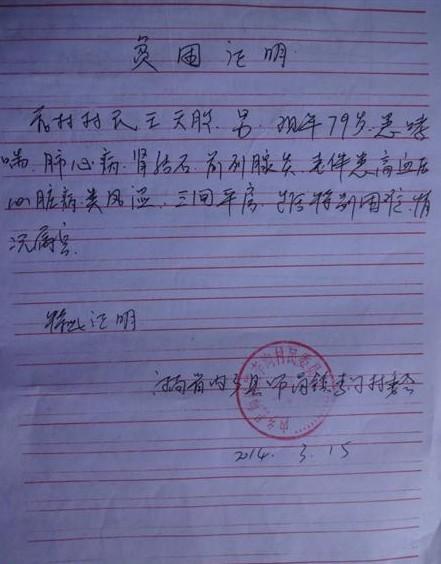 贫困证明
吾村村民王天股.男.现年79岁.患哮
喘.肺心病.肾结石.前列腺炎.老伴患高血压
心脏病.类风湿.三间平房.生活特别困难.情
况属实.
特此证明
河南省内乡县师岗镇李沟村委会
2014. 3. 15